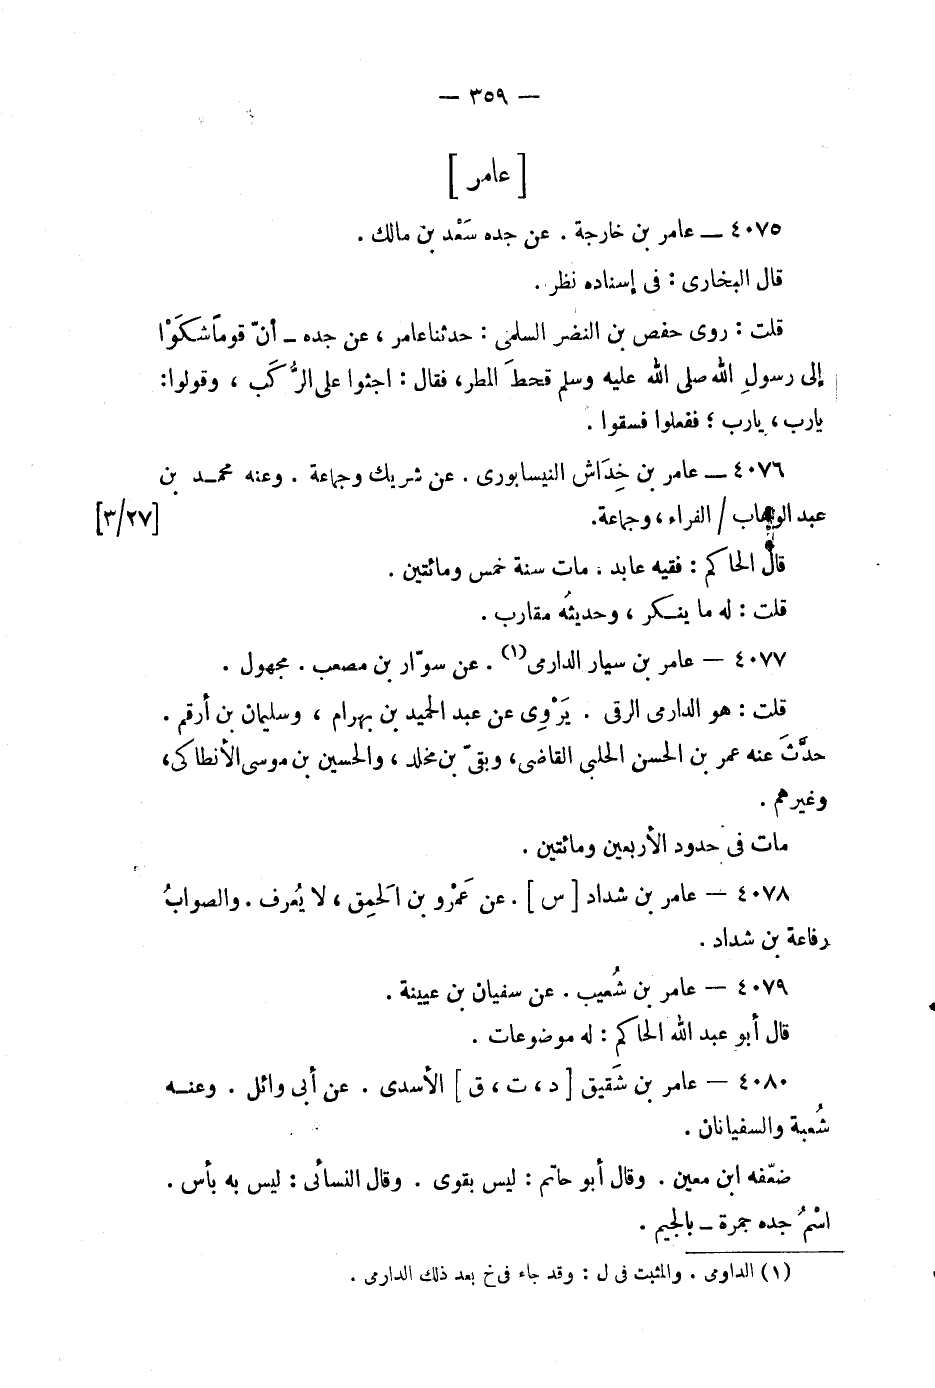 — ٣٥٩ —
[ عامر ]
٤٠٧٥ — عامر بن خارجة . عن جده سَعْد بن مالك .
قال البخارى : فى إسناده نظر .
قلت : روى حفص بن النضر السلمى : حدثنا عامر ، عن جده – أنّ قوماً شكَوْا
إلى رسولِ الله صلى الله عليه وسلم قحطَ المطر، فقال : اجثوا على الرُّكَب ، وقولوا:
يارب ، يارب ؛ ففعلوا فسقوا .
٤٠٧٦ — عامر بن خِدَاش النيسابورى . عن شريك وجماعة . وعنه محمد بن
عبد الوهاب / الفراء ، وجماعة.
[٣/٢٧]
قال الحاكم : فقيه عابد . مات سنة خمس ومائتين .
قلت : له ما ينكر ، وحديثُه مقارب .
٤٠٧٧ — عامر بن سيار الدارمى(١) . عن سوّار بن مصعب . مجهول .
قلت : هو الدارمى الرقى . يَرْوِى عن عبد الحميد بن بهرام ، وسليمان بن أرقم .
حدَّثَ عنه عمر بن الحسن الحلبى القاضى، وبقىّ بن مخلد ، والحسين بن موسى الأنطاكى،
وغيرهم .
مات فى حدود الأربعين ومائتين .
٤٠٧٨ — عامر بن شداد [ س ] . عن عَمْرو بن الَحمِق ، لا يُعرف . والصوابُ
رفاعة بن شداد .
٤٠٧٩ — عامر بن شُعيب . عن سفيان بن عيينة .
قال أبو عبد الله الحاكم : له موضوعات .
٤٠٨٠ — عامر بن شَقيق [ د ، ت ، ق ] الأسدى . عن أبى وائل . وعنه
شُعبة والسفيانان .
ضعّفه ابن معين . وقال أبو حاتم : ليس بقوى . وقال النسائى : ليس به بأس .
اسْمُ جده جمرة – بالجيم .
(١) الداومى . والمثبت فى ل : وقد جاء فى خ بعد ذلك الدارمى .